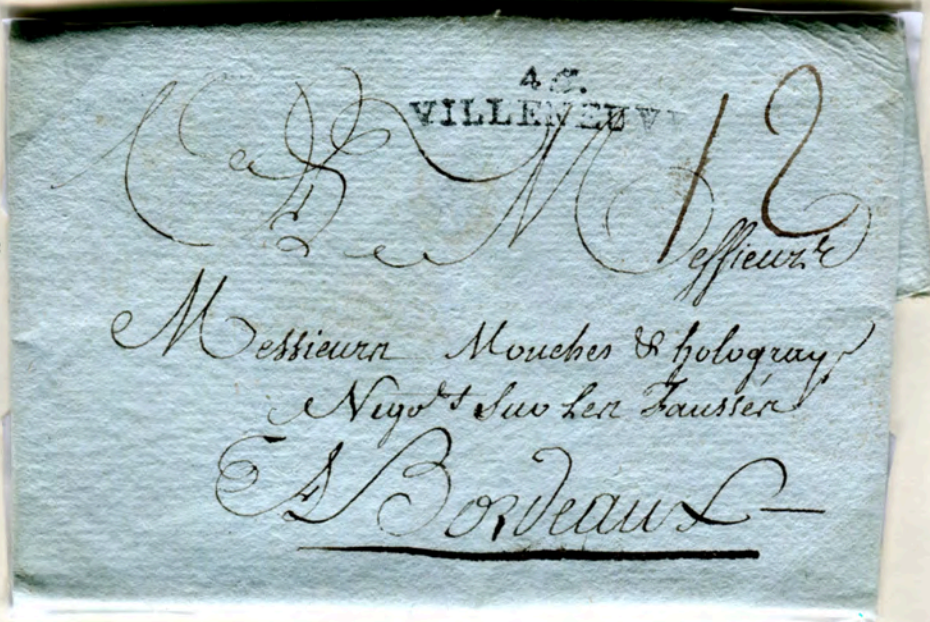 46.
VILLENEUV
12
A M essieurs
Messieurs Mouches & hologray
Negots Sur Les Fausséz
A Bordeaux